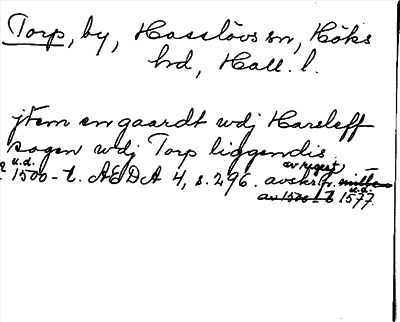 Torp, by, Hasslövs sn, Höks
hd, Hall. l.
jtem en gaardt wdj Harsleff
sogen wdj Torp liggendis
u.d.
1500-t. ÆDA 4, s. 296. avskr. fr.
av 1500-t u.d. 1577